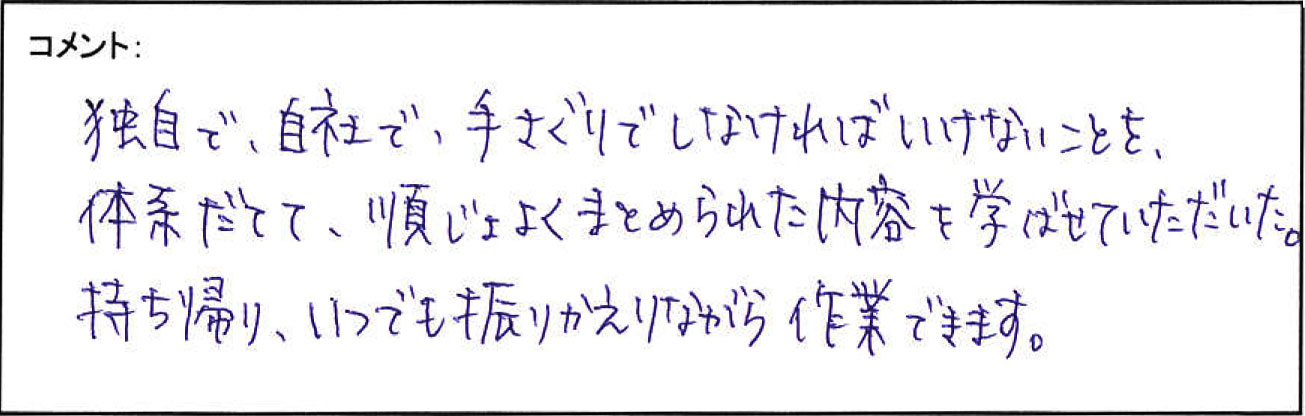 コメント:
独自で、自社で、手さぐりでしなければいけないことを、
体系だてて、順じょよくまとめられた内容を学ばせていただいた。
持ち帰り、いつでも振りかえりながら作業できます。